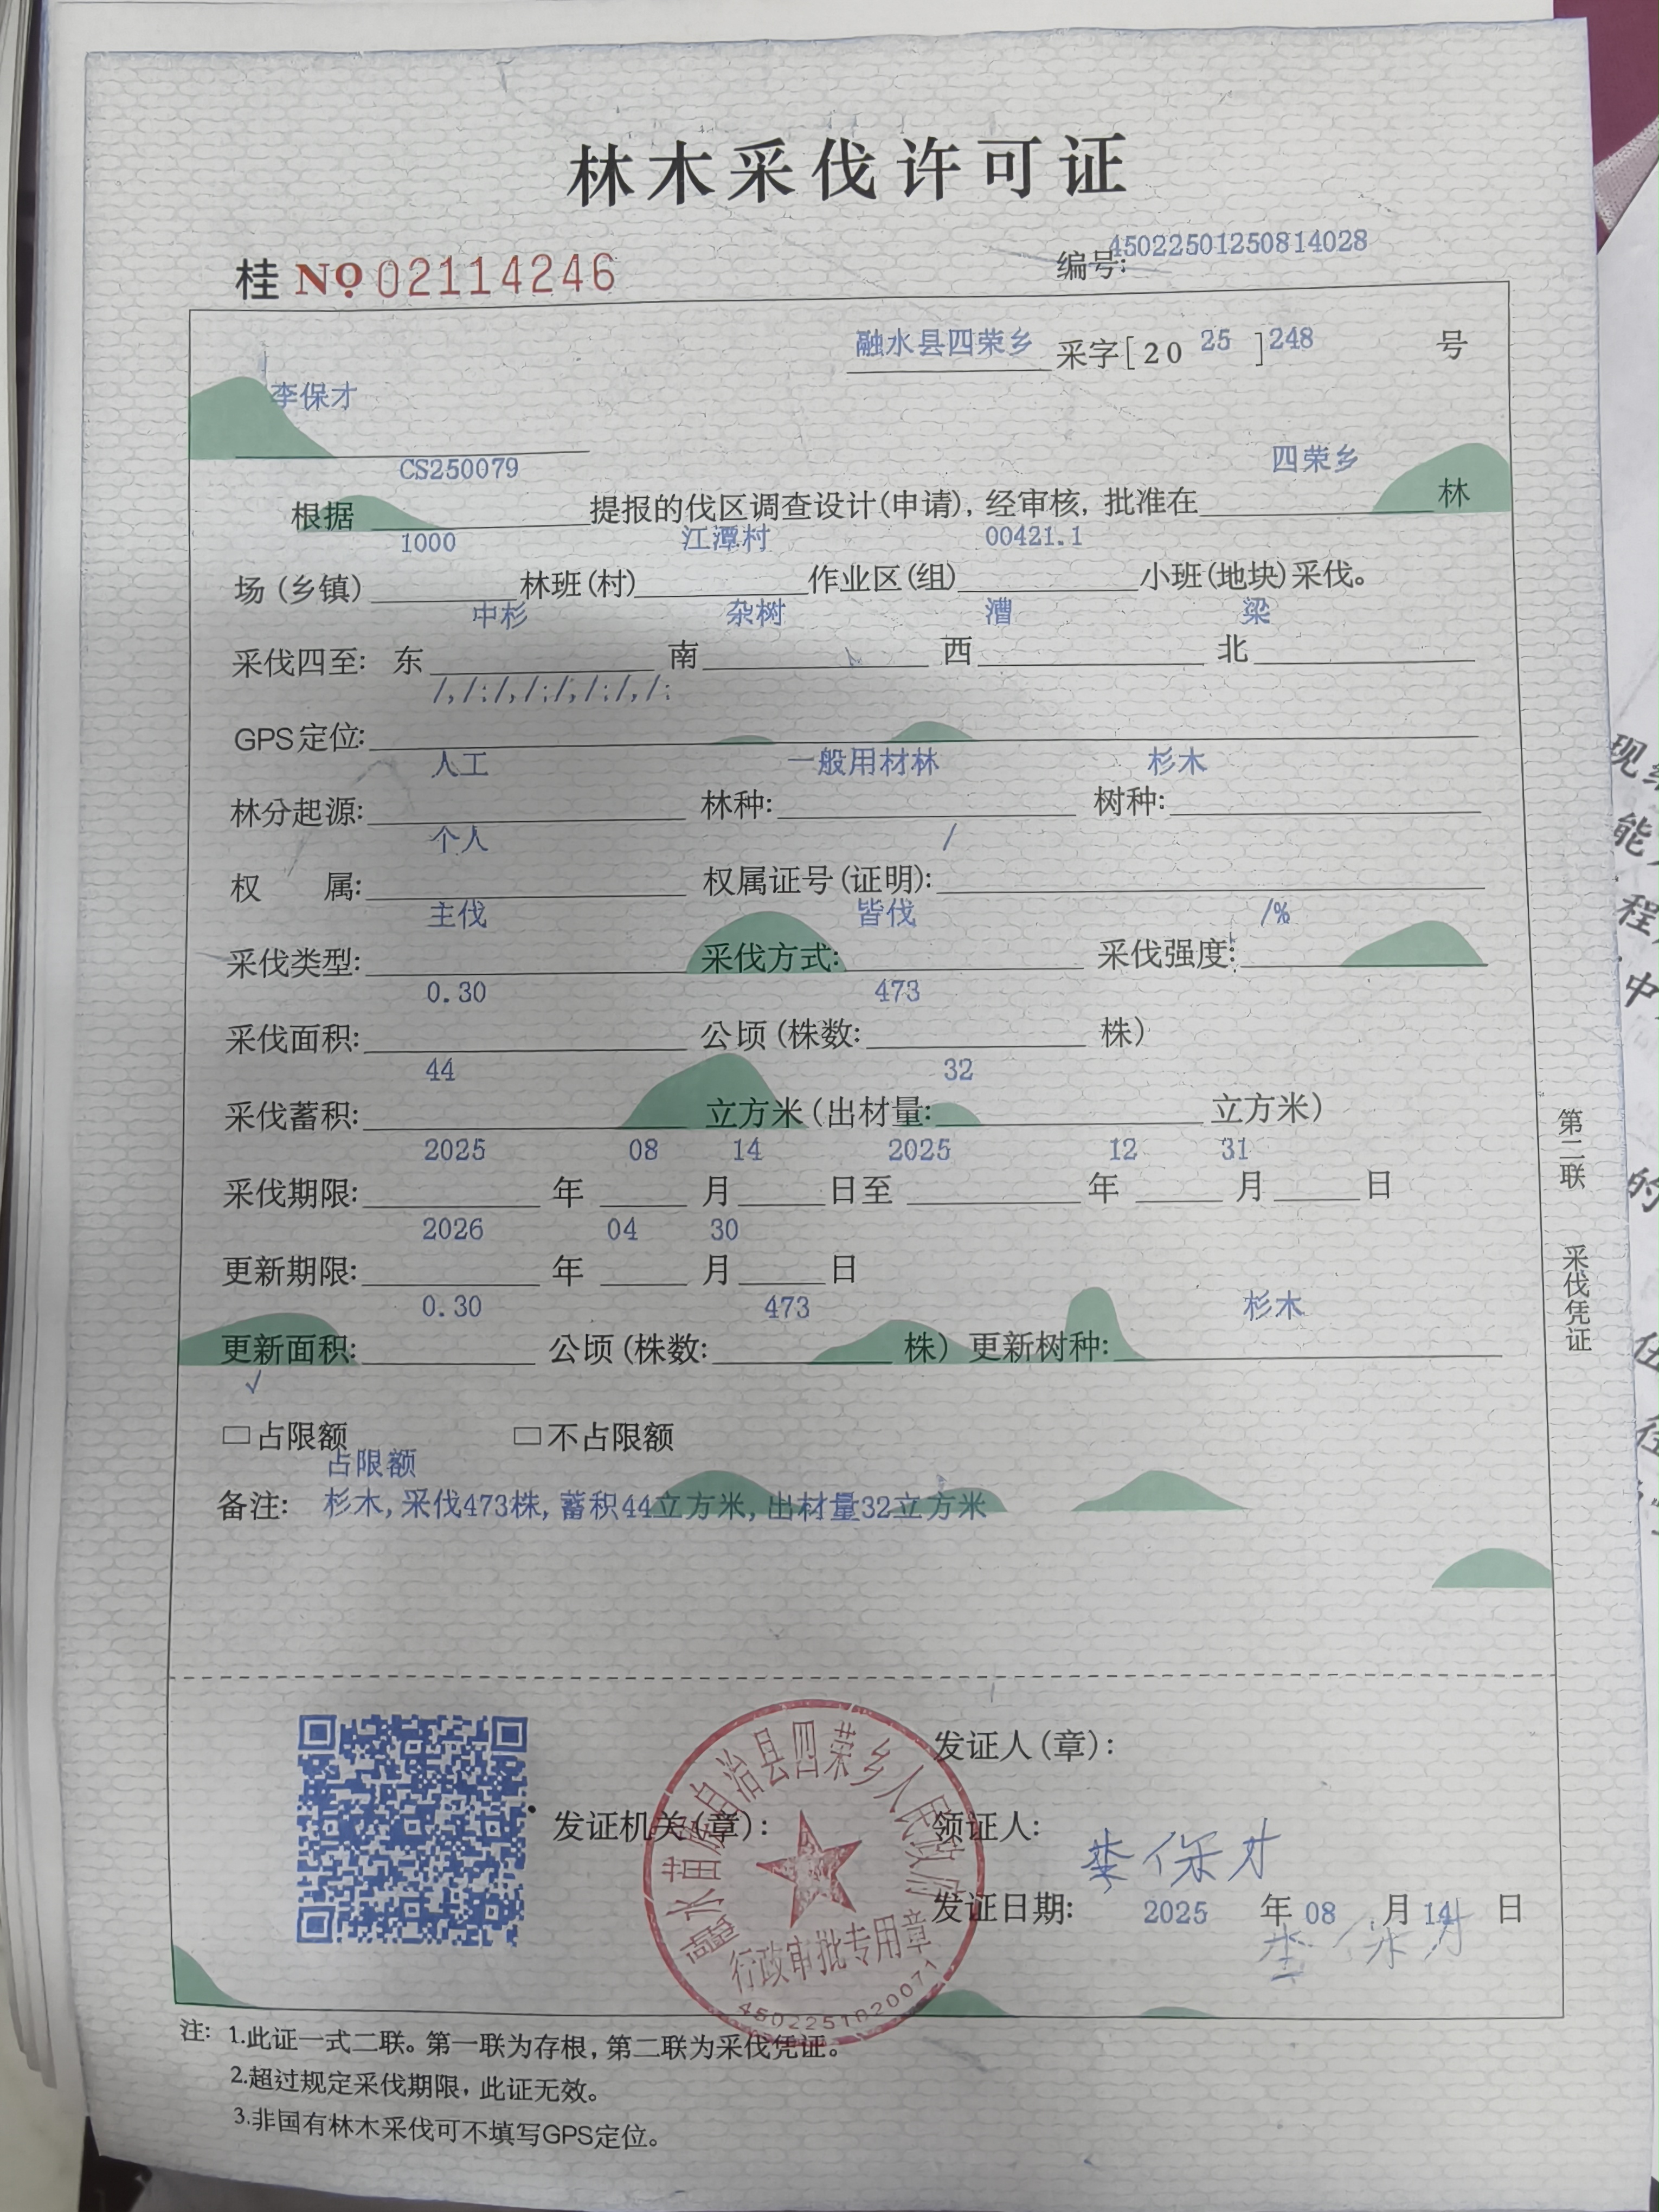 林木采伐许可证
桂 №02114246
编号:45022501250814028
融水县四荣乡 采字[2025]248 号
李保才
根据 CS250079 提报的伐区调查设计(申请),经审核,批准在 四荣乡 林
场(乡镇) 1000 林班(村) 江潭村 作业区(组) 00421.1 小班(地块)采伐。
采伐四至: 东 中杉 南 杂树 西 漕 北 梁
GPS定位: /,/;/,/;/,/;/,/;
林分起源: 人工 林种: 一般用材林 树种: 杉木
权 属: 个人 权属证号(证明): /
采伐类型: 主伐 采伐方式: 皆伐 采伐强度: /%
采伐面积: 0.30 公顷(株数: 473 株)
采伐蓄积: 44 立方米(出材量: 32 立方米)
采伐期限: 2025 年 08 月 14 日至 2025 年 12 月 31 日
更新期限: 2026 年 04 月 30 日
更新面积: 0.30 公顷(株数: 473 株) 更新树种: 杉木
√
□占限额 □不占限额
占限额
备注: 杉木,采伐473株,蓄积44立方米,出材量32立方米
第二联 采伐凭证
发证人(章):
发证机关(章):
融水苗族自治县四荣乡人民政府
行政审批专用章
4502251020071
领证人: 李保才
发证日期: 2025 年 08 月 14 日
李保才
注: 1.此证一式二联。第一联为存根,第二联为采伐凭证。
2.超过规定采伐期限,此证无效。
3.非国有林木采伐可不填写GPS定位。
现
能
程
中
的